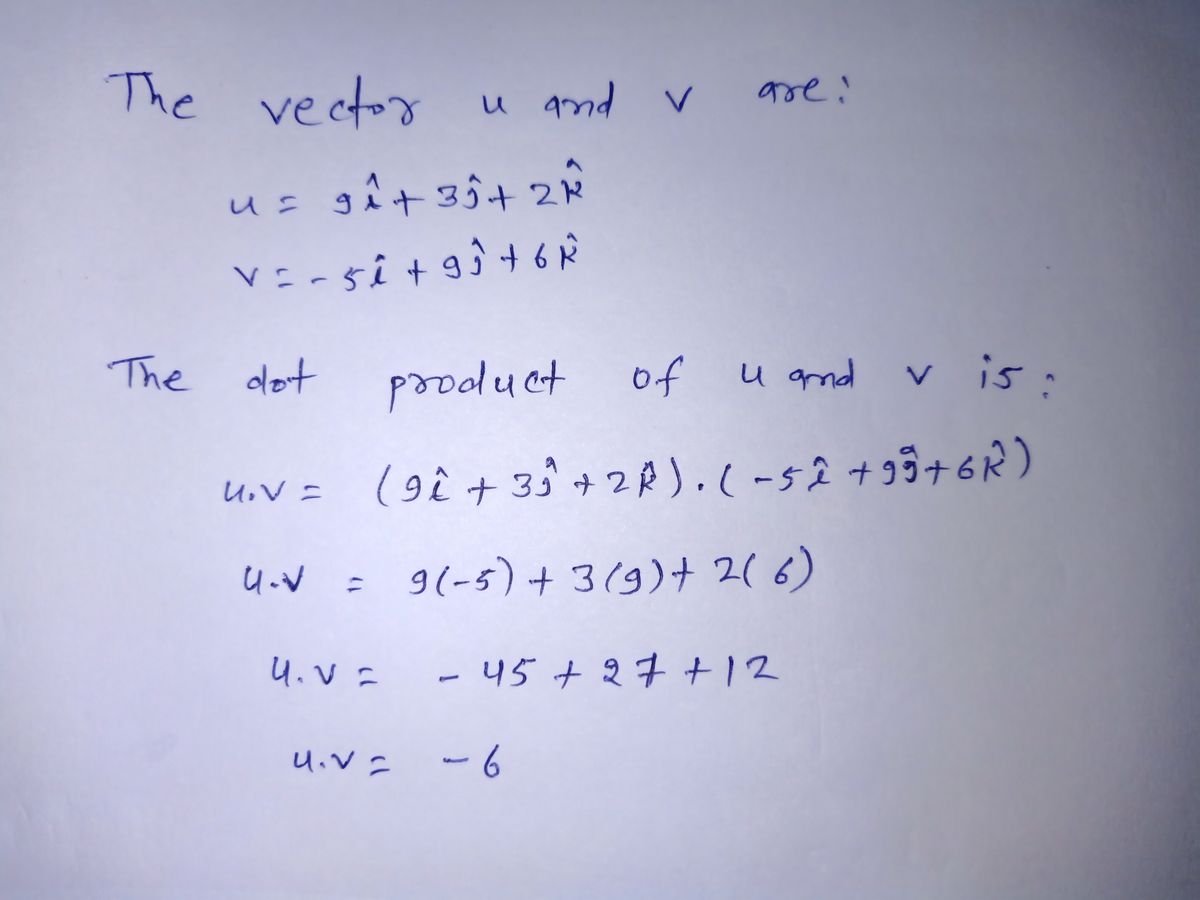 The vector u and v are:
u = 9î + 3ĵ + 2k̂
v = -5î + 9ĵ + 6k̂
The dot product of u and v is:
u.v = (9î + 3ĵ + 2k̂).(-5î + 9ĵ + 6k̂)
u.v = 9(-5) + 3(9) + 2(6)
u.v = - 45 + 27 + 12
u.v = - 6